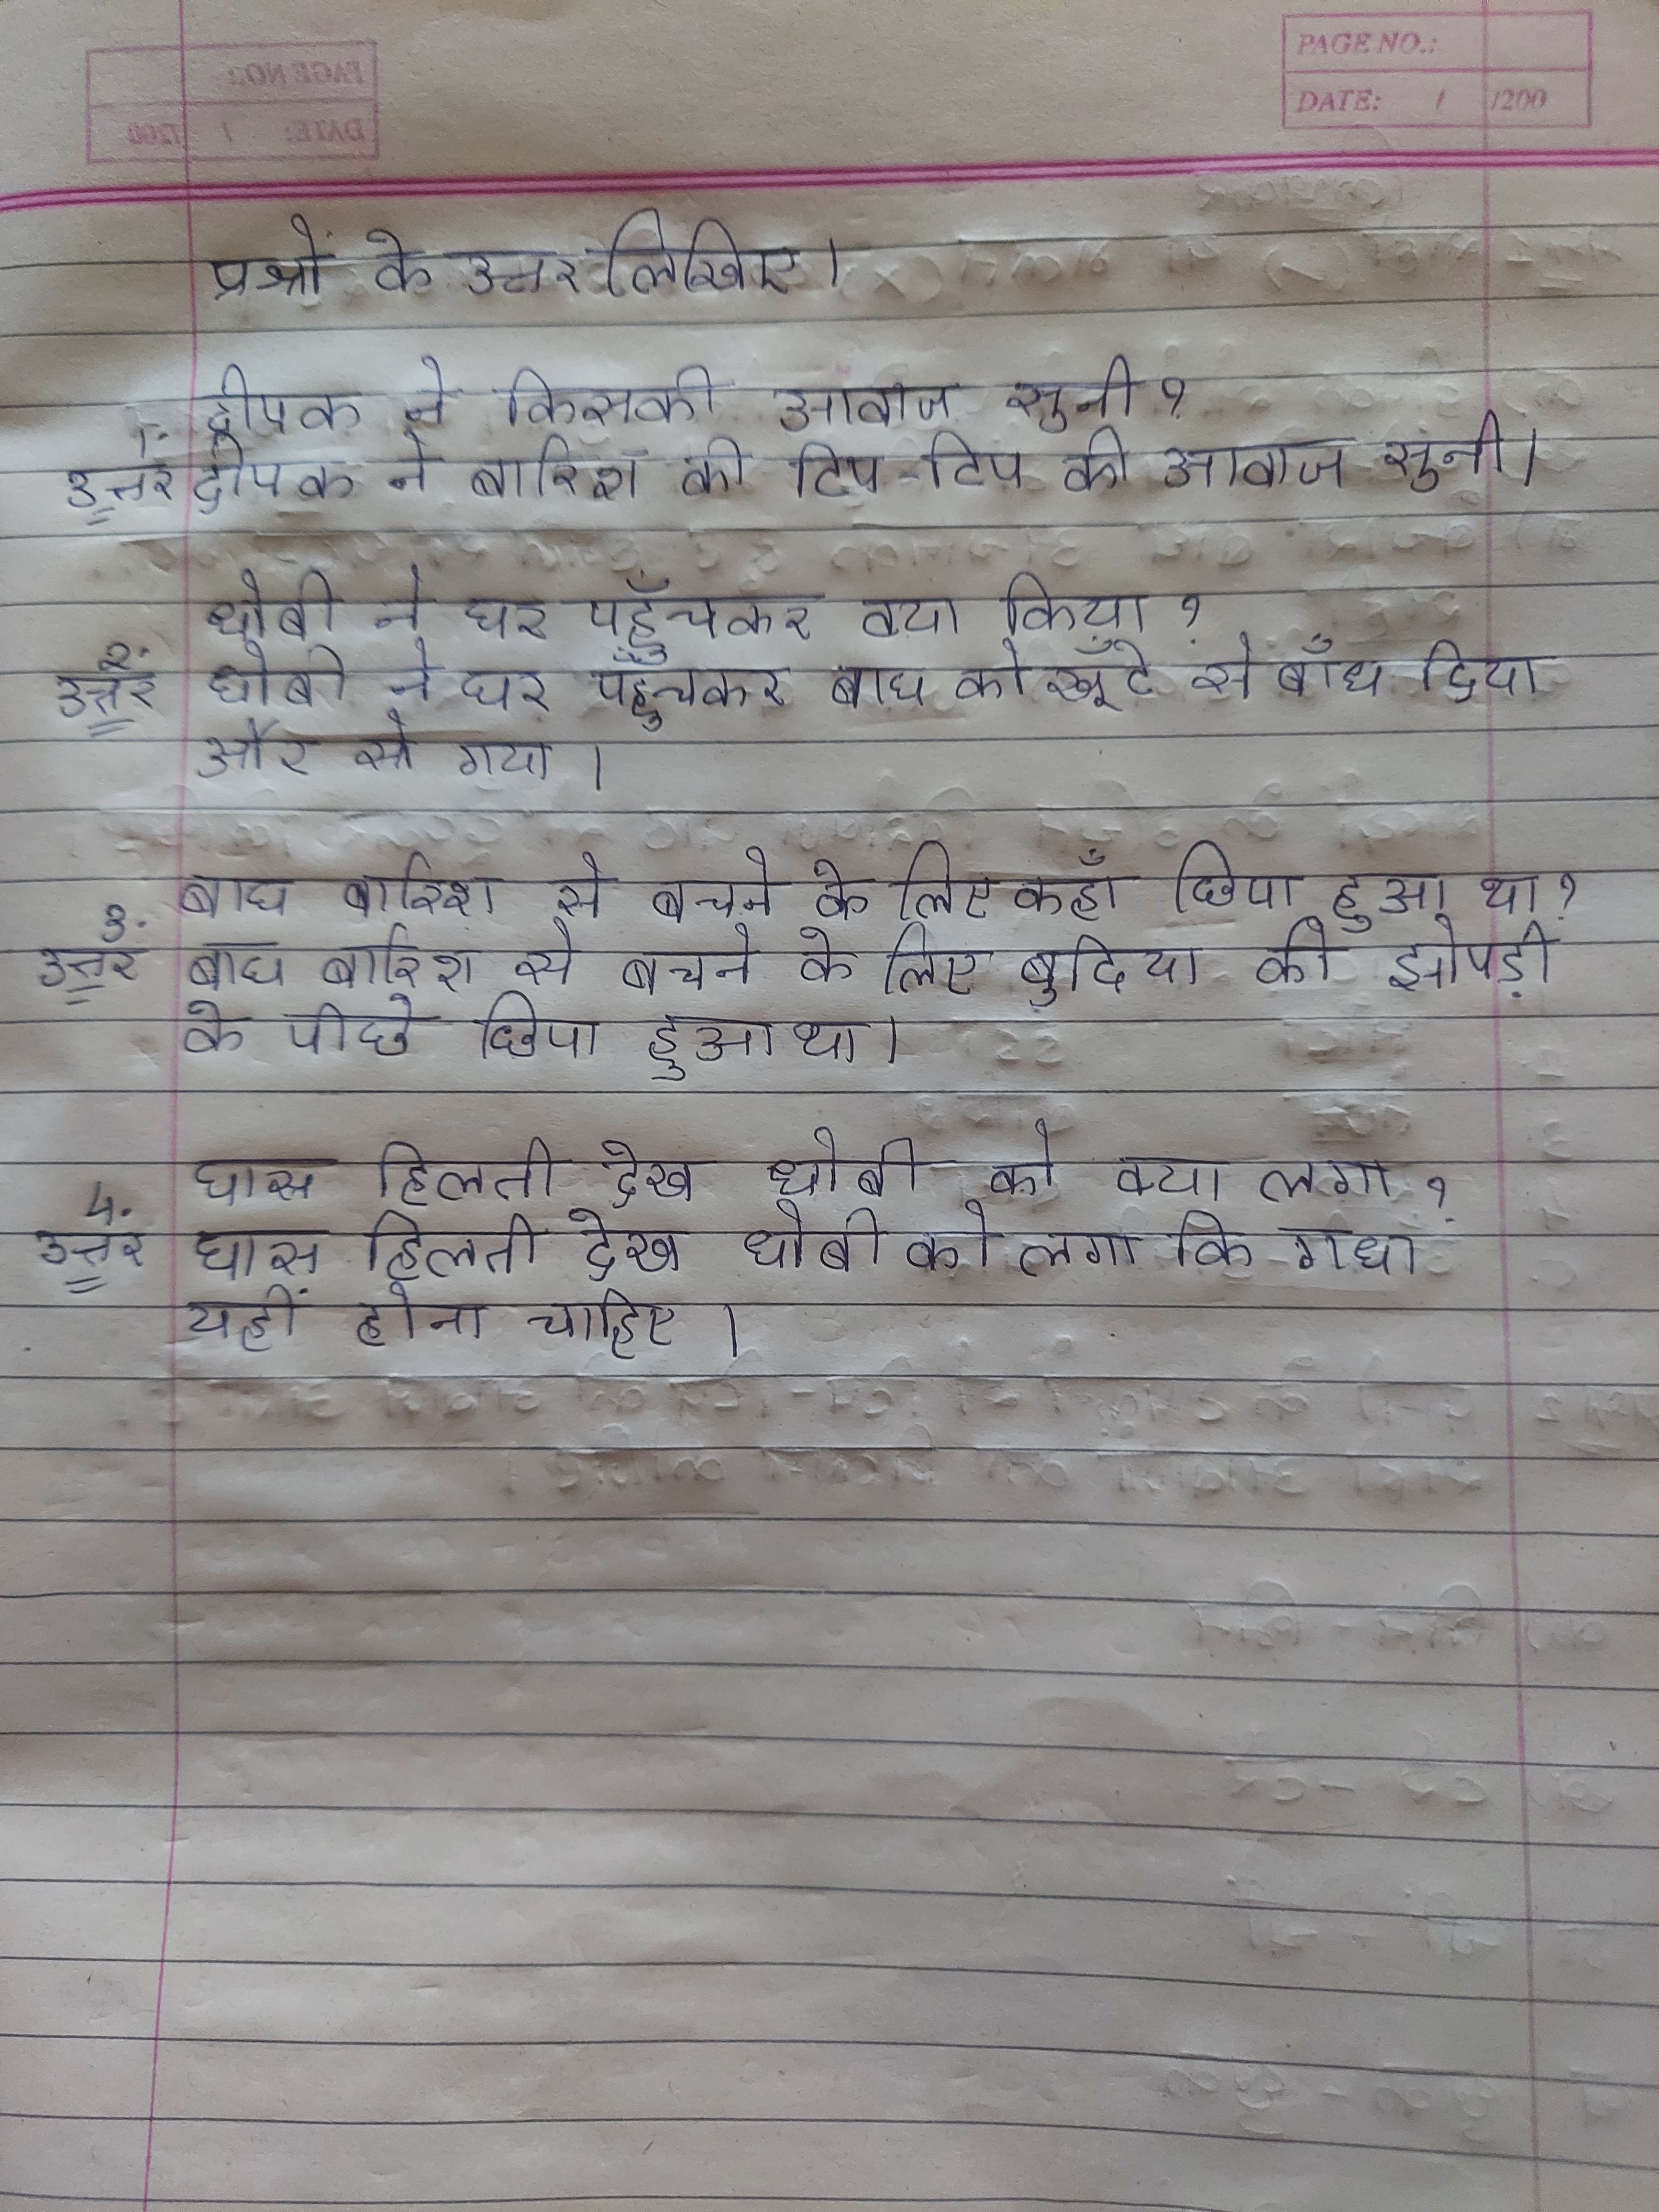 PAGE NO.:
DATE: / /200
प्रश्नों के उत्तर लिखिए।
1. दीपक ने किसकी आवाज सुनी?
उत्तर दीपक ने बारिश की टिप-टिप की आवाज सुनी।
2. धोबी ने घर पहुँचकर क्या किया?
उत्तर धोबी ने घर पहुँचकर बाघ को खूँटे से बाँध दिया
और सो गया।
3. बाघ बारिश से बचने के लिए कहाँ छिपा हुआ था?
उत्तर बाघ बारिश से बचने के लिए बुढिया की झोपड़ी
के पीछे छिपा हुआ था।
4. घास हिलती देख धोबी को क्या लगा?
उत्तर घास हिलती देख धोबी को लगा कि गधा
यहीं होना चाहिए।